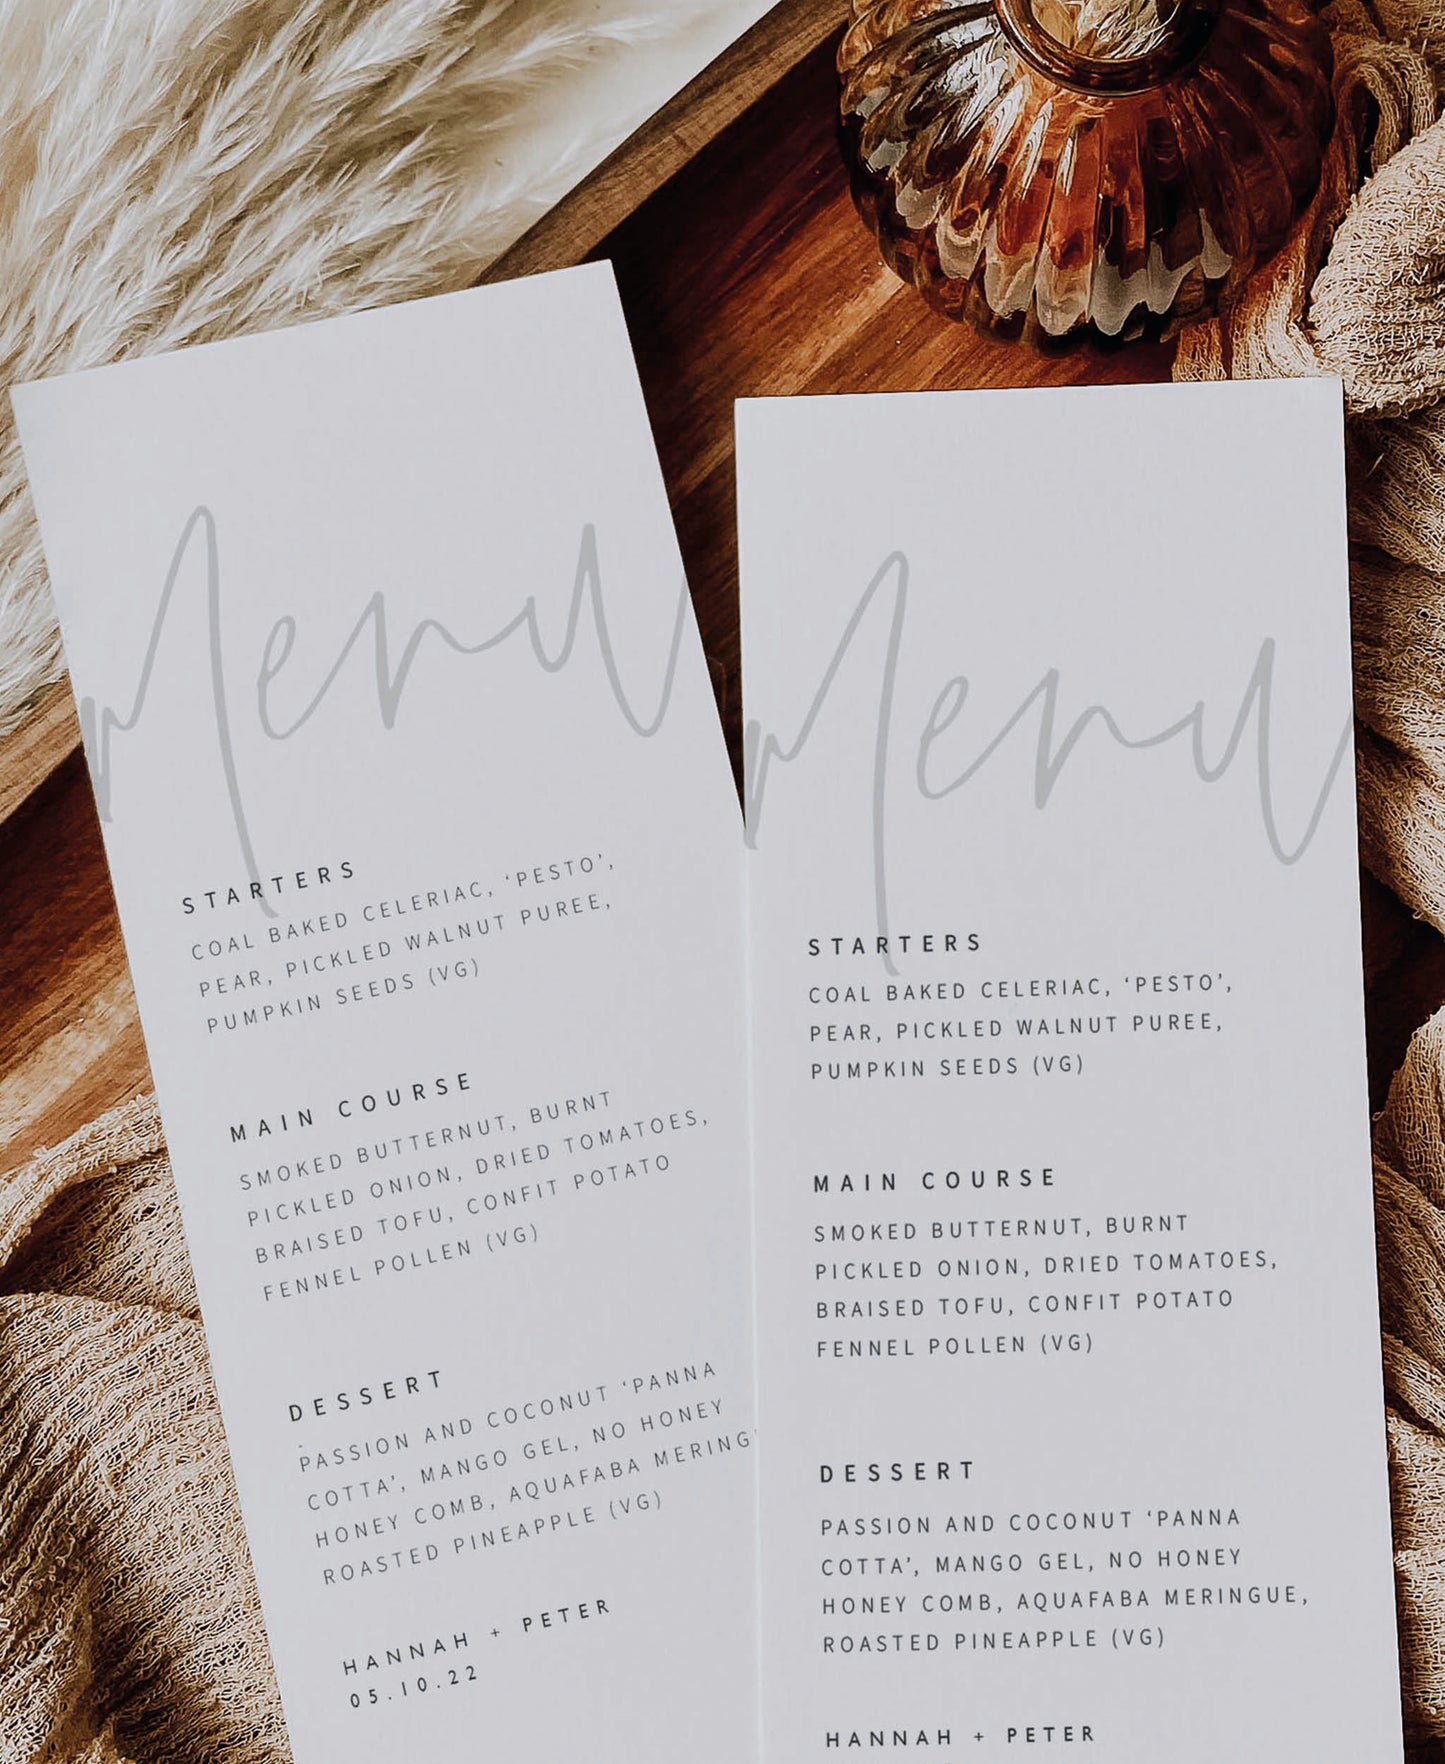 Menu
STARTERS
COAL BAKED CELERIAC, ‘PESTO’,
PEAR, PICKLED WALNUT PUREE,
PUMPKIN SEEDS (VG)
MAIN COURSE
SMOKED BUTTERNUT, BURNT
PICKLED ONION, DRIED TOMATOES,
BRAISED TOFU, CONFIT POTATO
FENNEL POLLEN (VG)
DESSERT
PASSION AND COCONUT ‘PANNA
COTTA’, MANGO GEL, NO HONEY
HONEY COMB, AQUAFABA MERING
ROASTED PINEAPPLE (VG)
HANNAH + PETER
05.10.22
Menu
STARTERS
COAL BAKED CELERIAC, ‘PESTO’,
PEAR, PICKLED WALNUT PUREE,
PUMPKIN SEEDS (VG)
MAIN COURSE
SMOKED BUTTERNUT, BURNT
PICKLED ONION, DRIED TOMATOES,
BRAISED TOFU, CONFIT POTATO
FENNEL POLLEN (VG)
DESSERT
PASSION AND COCONUT ‘PANNA
COTTA’, MANGO GEL, NO HONEY
HONEY COMB, AQUAFABA MERINGUE,
ROASTED PINEAPPLE (VG)
HANNAH + PETER